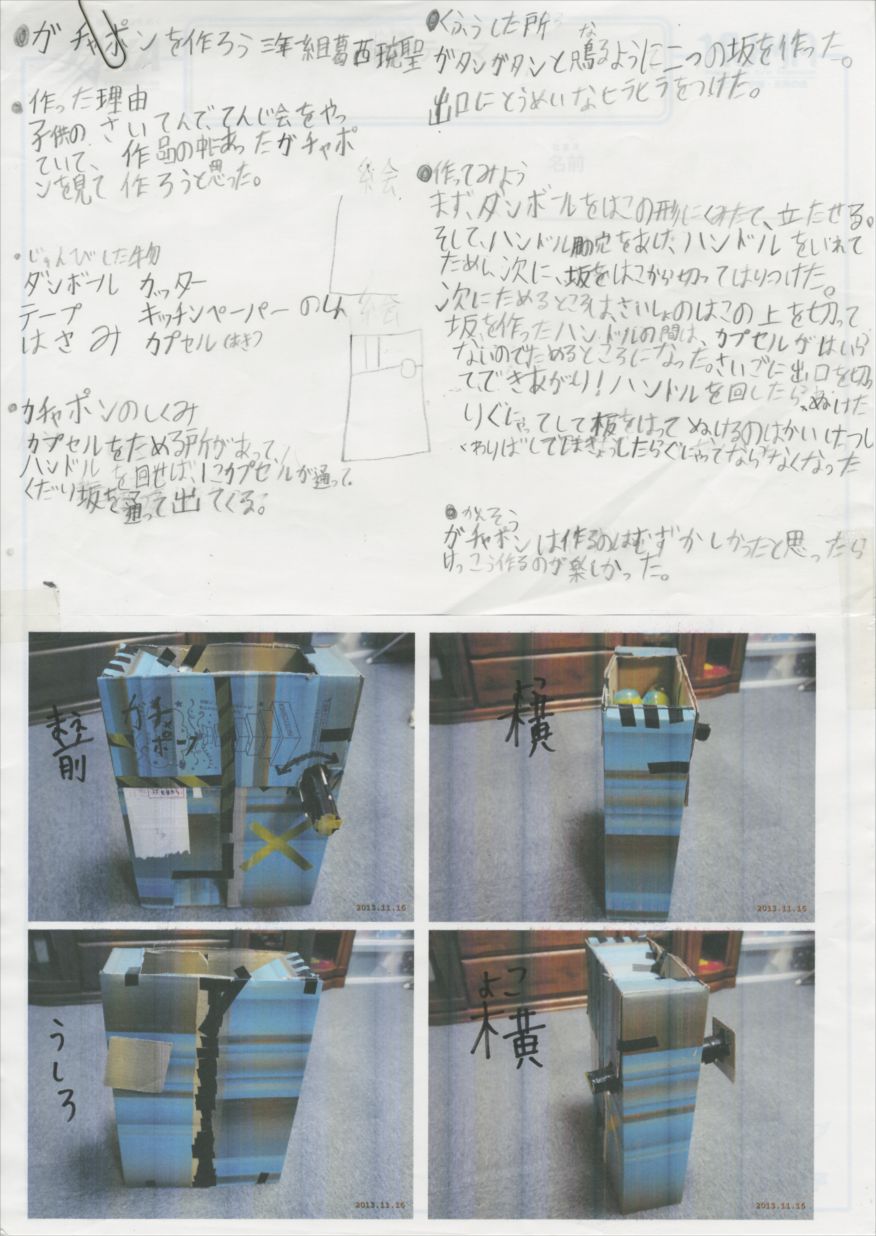 ガチャポンを作ろう 三年 組葛西琉聖
作った理由
子供の さいてんで、てんじ会をやっ
ていて、 作品の中にあったガチャポ
ンを見て 作ろうと思った。
じゅんびした物
ダンボール カッター
テープ キッチンペーパーの
はさみ カプセル
絵
絵
ガチャポンのしくみ
カプセルをためる所があって、
ハンドルを回せば、にカプセルが通って
くだり坂を通って出てくる。
くふうした所
な
ガタンガタンと鳴るように二つの坂を作った。
出口にとうめいなヒラヒラをつけた。
作ってみよう
まず、ダンボールをはこの形にくみたて、立たせる。
そして、ハンドル穴をあけ、ハンドルをいれて
ため、次に、坂をはこから切ってはりつけた。
次にためるところはさいしょのはこの上を切って
坂を作ったハンドルの間は、カプセルがはいら
ないのでためるところになった。さいごに出口を切っ
てできあがり!ハンドルを回したら、ぬけた
りぐにゃってして板をはってぬけるのはかいけつし
わりばしでほきょうしたらぐにゃってならなくなった
かんそう
ガチャポンは作るのはむずかしかったと思ったら
けっこう作るのが楽しかった。
前
ガチャ
ポン
2013.11.16
よこ
横
2013.11.16
うしろ
2013.11.16
よこ
横
2013.11.16